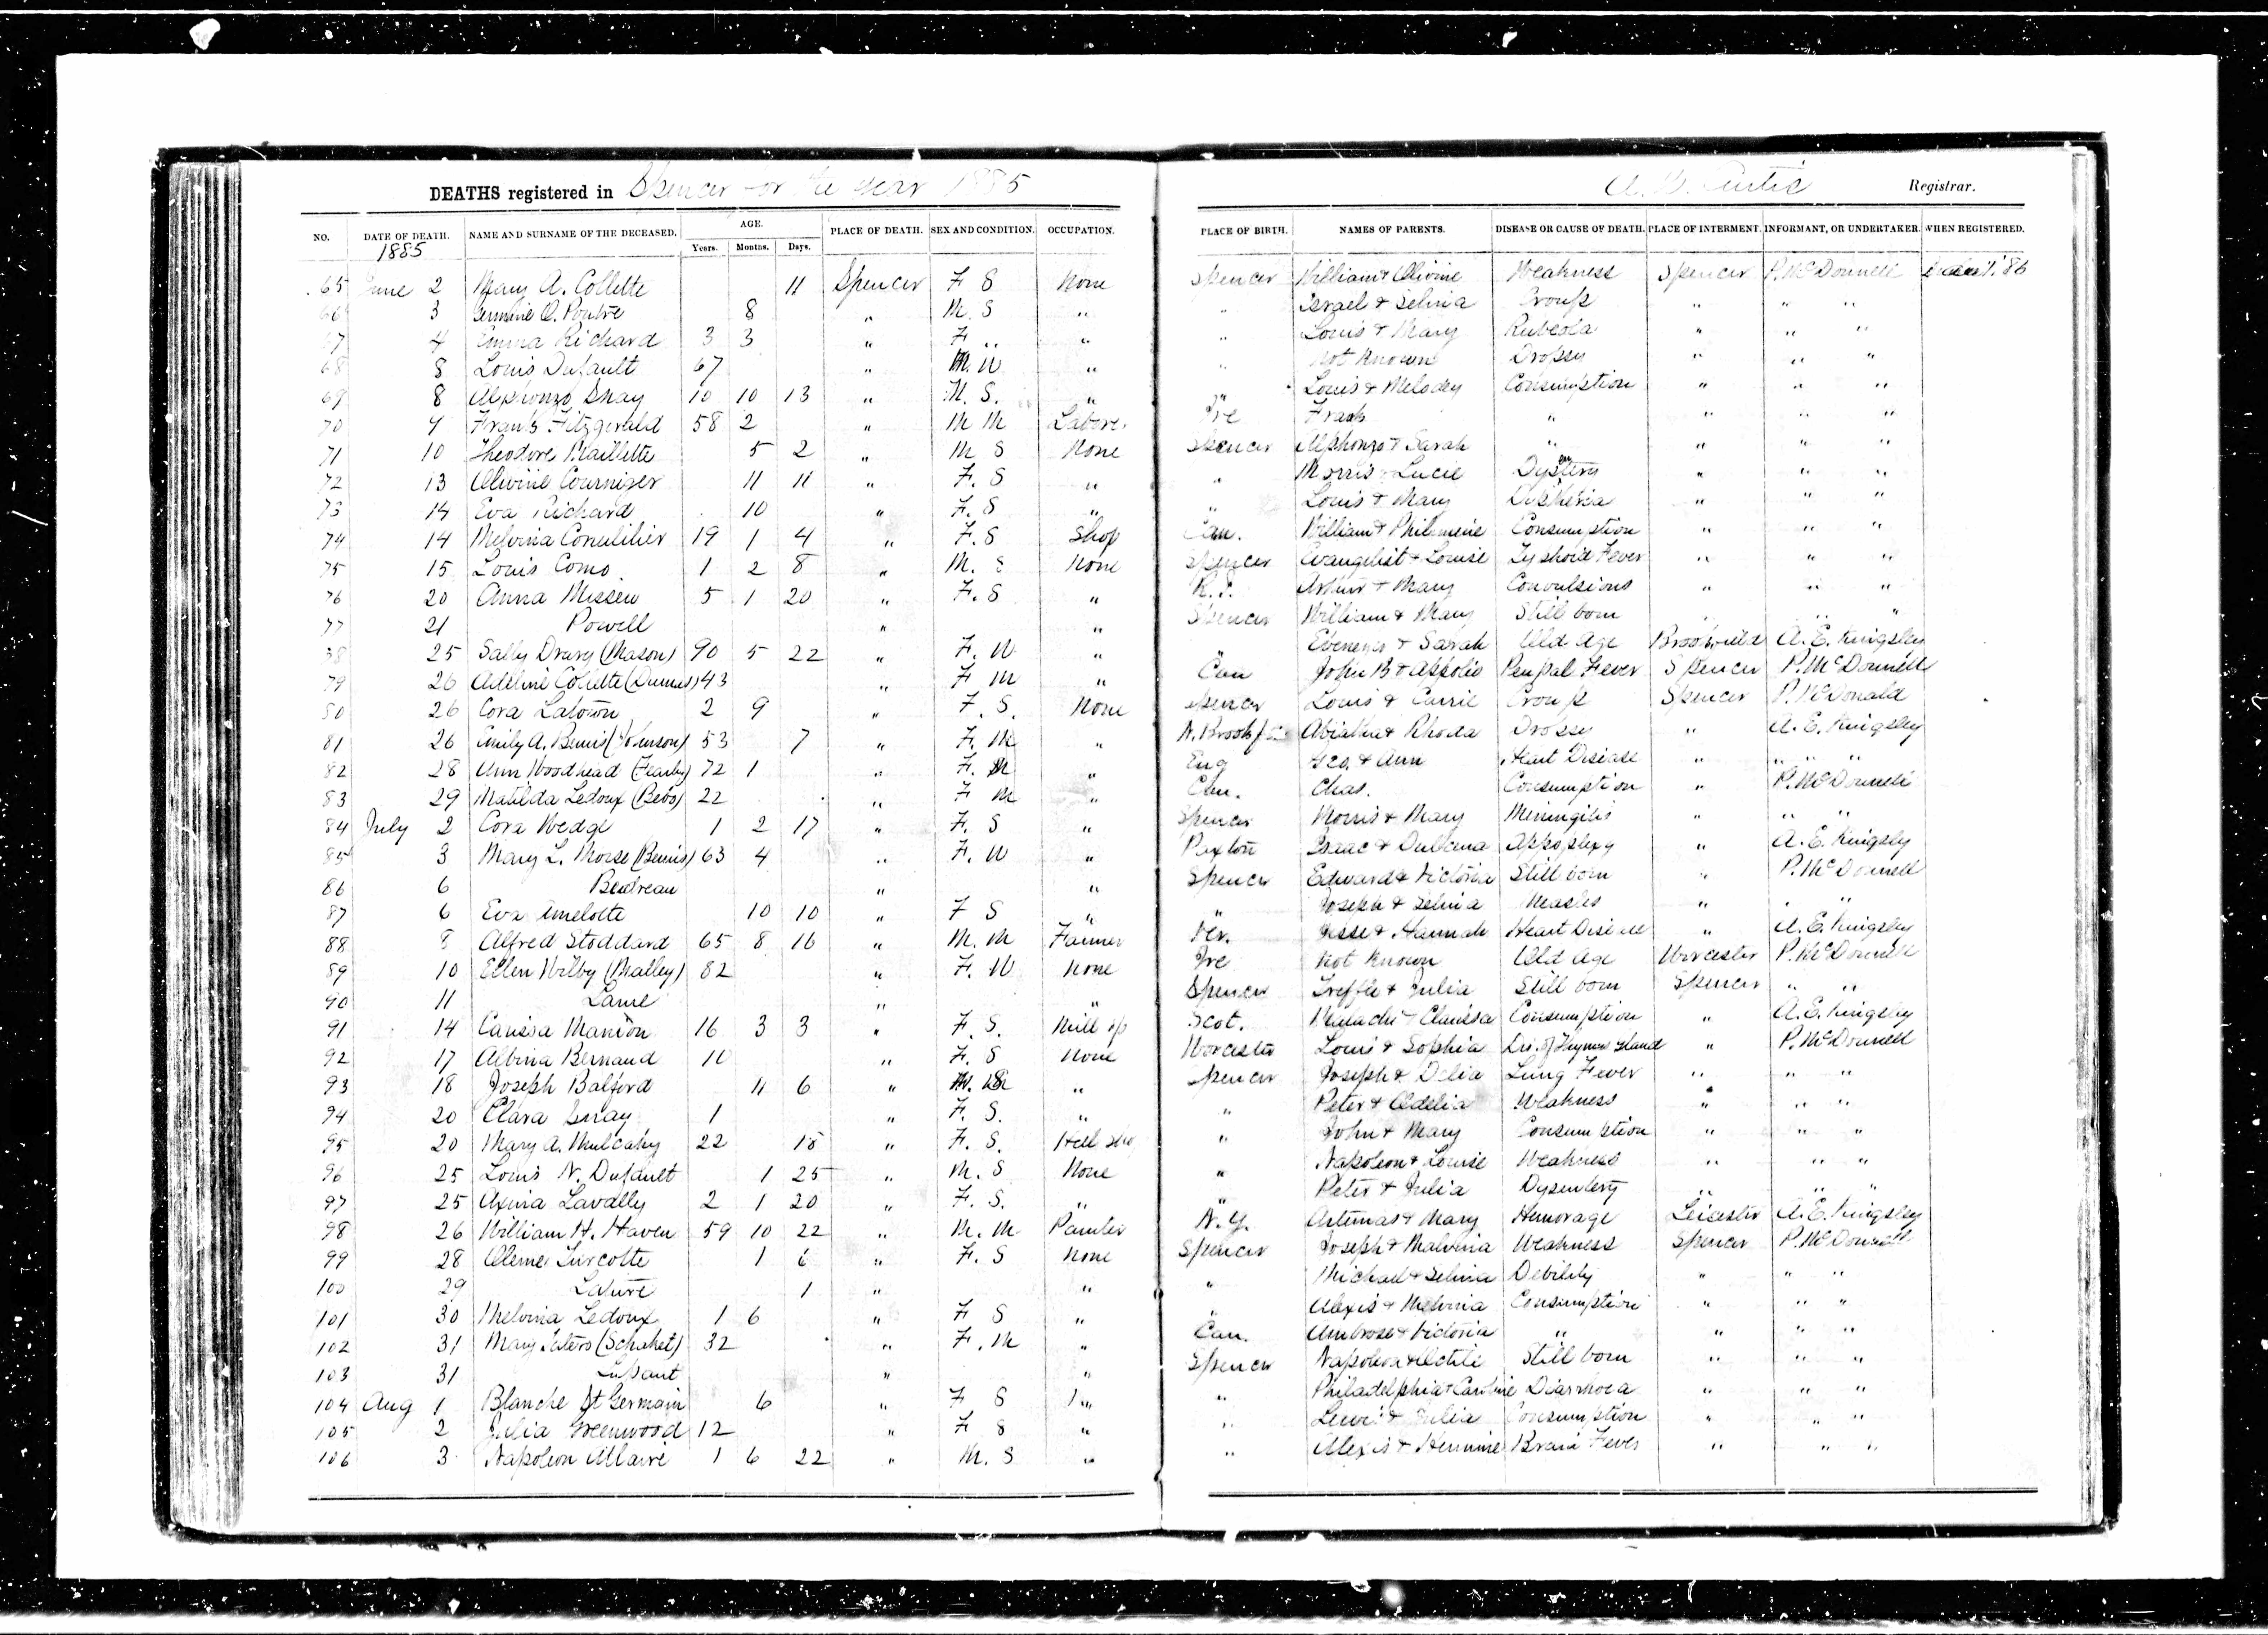 DEATHS registered in Spencer for the year 1885
A. W. Curtis Registrar.
NO. DATE OF DEATH. NAME AND SURNAME OF THE DECEASED. AGE. Years. Months. Days. PLACE OF DEATH. SEX AND CONDITION. OCCUPATION. PLACE OF BIRTH. NAMES OF PARENTS. DISEASE OR CAUSE OF DEATH. PLACE OF INTERMENT. INFORMANT, OR UNDERTAKER. WHEN REGISTERED.
1885
65 June 2 Mary A. Collette 11 Spencer F S None Spencer William & Olivine Weakness Spencer P. McDonnell '86
66 3 O. Poutre 8 " M. S " " Israel & Selina Croup " " "
67 4 Emma Richard 3 3 " F " " " Louis & Mary Rubeola " " "
68 8 Louis Dufault 67 " M. W " " Not Known Dropsy " " "
69 8 Alphonzo Shay 10 10 13 " M. S. " " Louis & Melodey Consumption " " "
70 9 Frank Fitzgerald 58 2 " M M Laborer Ire Frank " " " "
71 10 Theodore Maillette 5 2 " M S None Spencer Alphonzo & Sarah " " " "
72 13 Olivine Cournizer 11 11 " F. S " " Morris & Lucie Dysentery " " "
73 14 Eva Richard 10 " F. S " " Louis & Mary Diptheria " " "
74 14 Melvina 19 1 4 " F. S Shop Can. William & Philimene Consumption " " "
75 15 Louis Como 1 2 8 " M. S None Spencer Evangelist & Louise Typhoid Fever " " "
76 20 Anna Missen 5 1 20 " F. S " R. I. Arthur & Mary Convulsions " " "
77 21 Powell " " Spencer William & Mary Still born " " "
78 25 Sally Drury (Mason) 90 5 22 " F. W " " Ebenezer & Sarah Old Age Brookfield A. E. Kingsley
79 26 Adeline Collette (Dumas) 43 " F M " Can John B & Appolis Fever Spencer P. McDonnell
80 26 Cora 2 9 " F. S. None Spencer Louis & Carrie Croup Spencer P. McDonald
81 26 Emily A. Bemis (Johnson) 53 7 " F. M " N. Brookf Abiathar & Rhoda Dropsy " A. E. Kingsley
82 28 Ann Woodhead 72 1 " F. M " Eng Geo. & Ann Heart Disease " " "
83 29 Matilda Ledoux 22 " F M " Can. Chas. Consumption " P. McDonnell
84 July 2 Cora Wedge 1 2 17 " F. S " Spencer Morris & Mary Meningitis " " "
85 3 Mary L. Morse (Bemis) 63 4 " F. W " Paxton Isaac & Appoplexy " A. E. Kingsley
86 6 Beudreau " " Spencer Edward & Victoria Still born " P. McDonnell
87 6 Eva Amelotte 10 10 " F S " " Joseph & Selina Measles " " "
88 8 Alfred Stoddard 65 8 16 " M. M Farmer Jesse & Hannah Heart Disease " A. E. Kingsley
89 10 Ellen Wilby (Malley) 82 " F. W None Ire Not Known Old Age Worcester P. McDonnell
90 11 " " Spencer Treffle & Julia Still born Spencer " "
91 14 Manion 16 3 3 " F. S. Mill op Scot. Malachi & Clarissa Consumption " A. E. Kingsley
92 17 Albina Bernaud 10 " F. S None Worcester Louis & Sophia Dis. of Thymus Gland " P. McDonnell
93 18 Joseph Balford 6 " " Spencer Joseph & Delia Lung Fever " " "
94 20 Clara Gray 1 " F. S. " " Peter & Adelia Weakness " " "
95 20 Mary A. Mulcahy 22 18 " F. S. " John & Mary Consumption " " "
96 25 Louis N. Dufault 1 25 " M. S None " Napoleon & Louise Weakness " " "
97 25 Lavally 2 1 20 " F. S. " " Peter & Julia Dysentery " " "
98 26 William H. Haven 59 10 22 " M. M Painter N. Y. Artimas & Mary Hemorage Leicester A. E. Kingsley
99 28 Turcotte 1 6 " F. S None Spencer Joseph & Malvina Weakness Spencer P. McDonnell
100 29 1 " " " Michael & Selina Debility " " "
101 30 Melvina Ledoux 1 6 " F S " " Alexis & Melvina Consumption " " "
102 31 Mary 32 " F. M " Can. Ambrose & Victoria " " " "
103 31 " " Spencer Napoleon & Still born " " "
104 Aug 1 Blanche St Germain 6 " F S " " Philadelphia & Caroline Diarrhoea " " "
105 2 Julia Greenwood 12 " F S " " & Julia Consumption " " "
106 3 Napoleon Allaire 1 6 22 " M. S " " Alexis & Hermine Brain Fever " " "